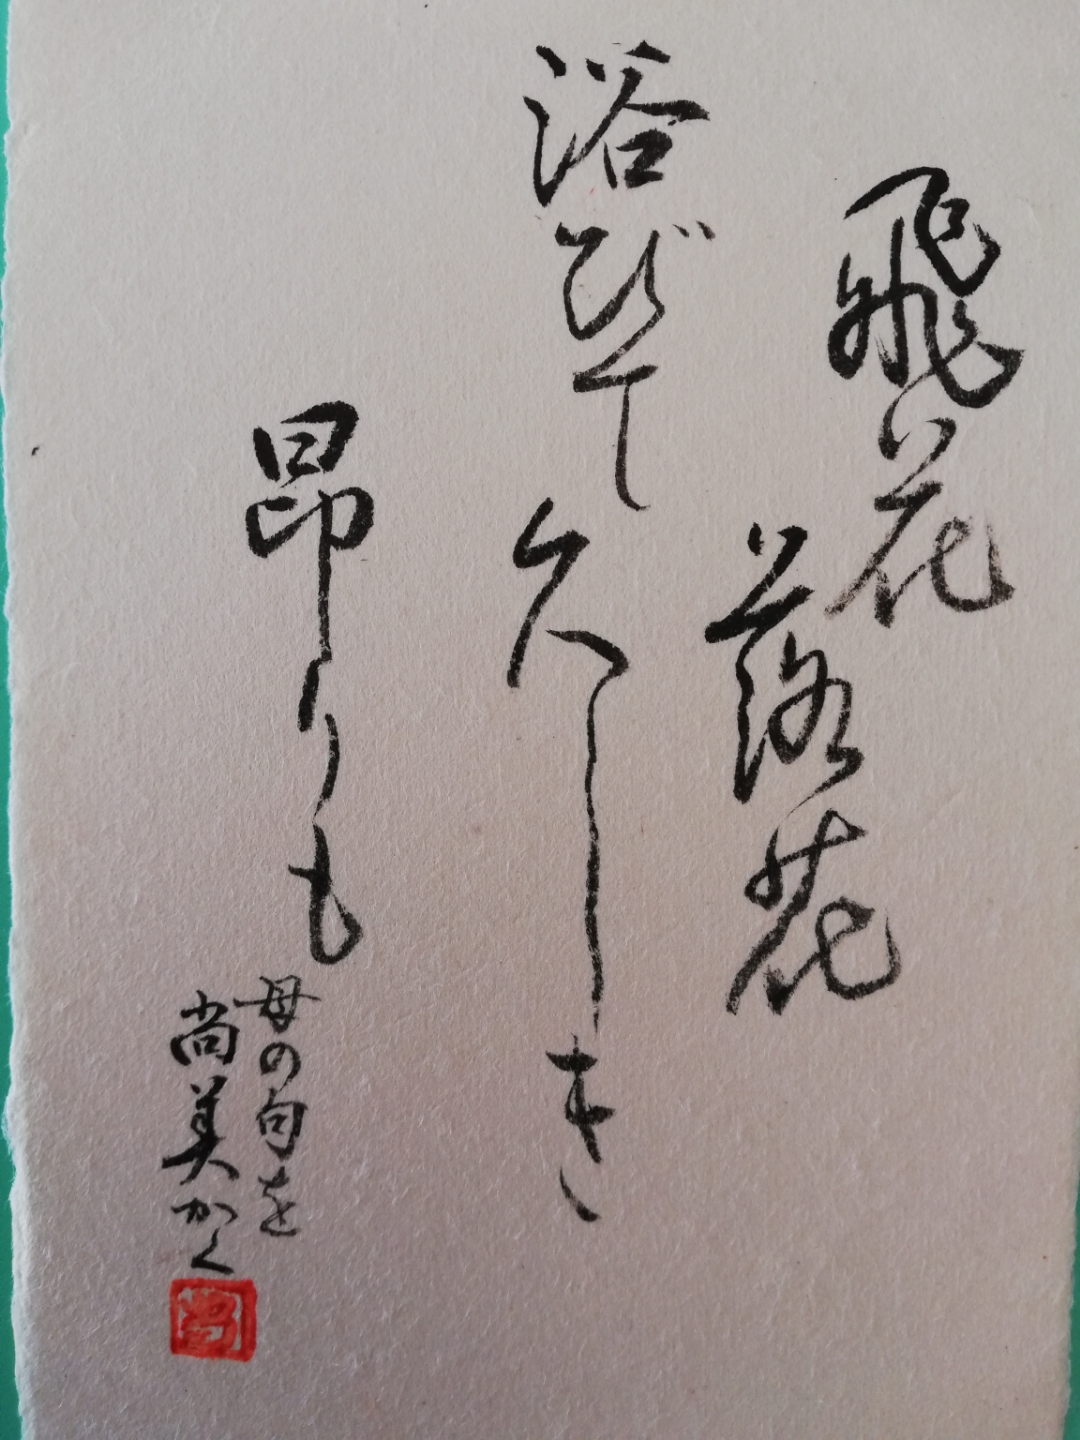 飛花落花
浴びて久しき
昂りも
母の句を
尚美かく